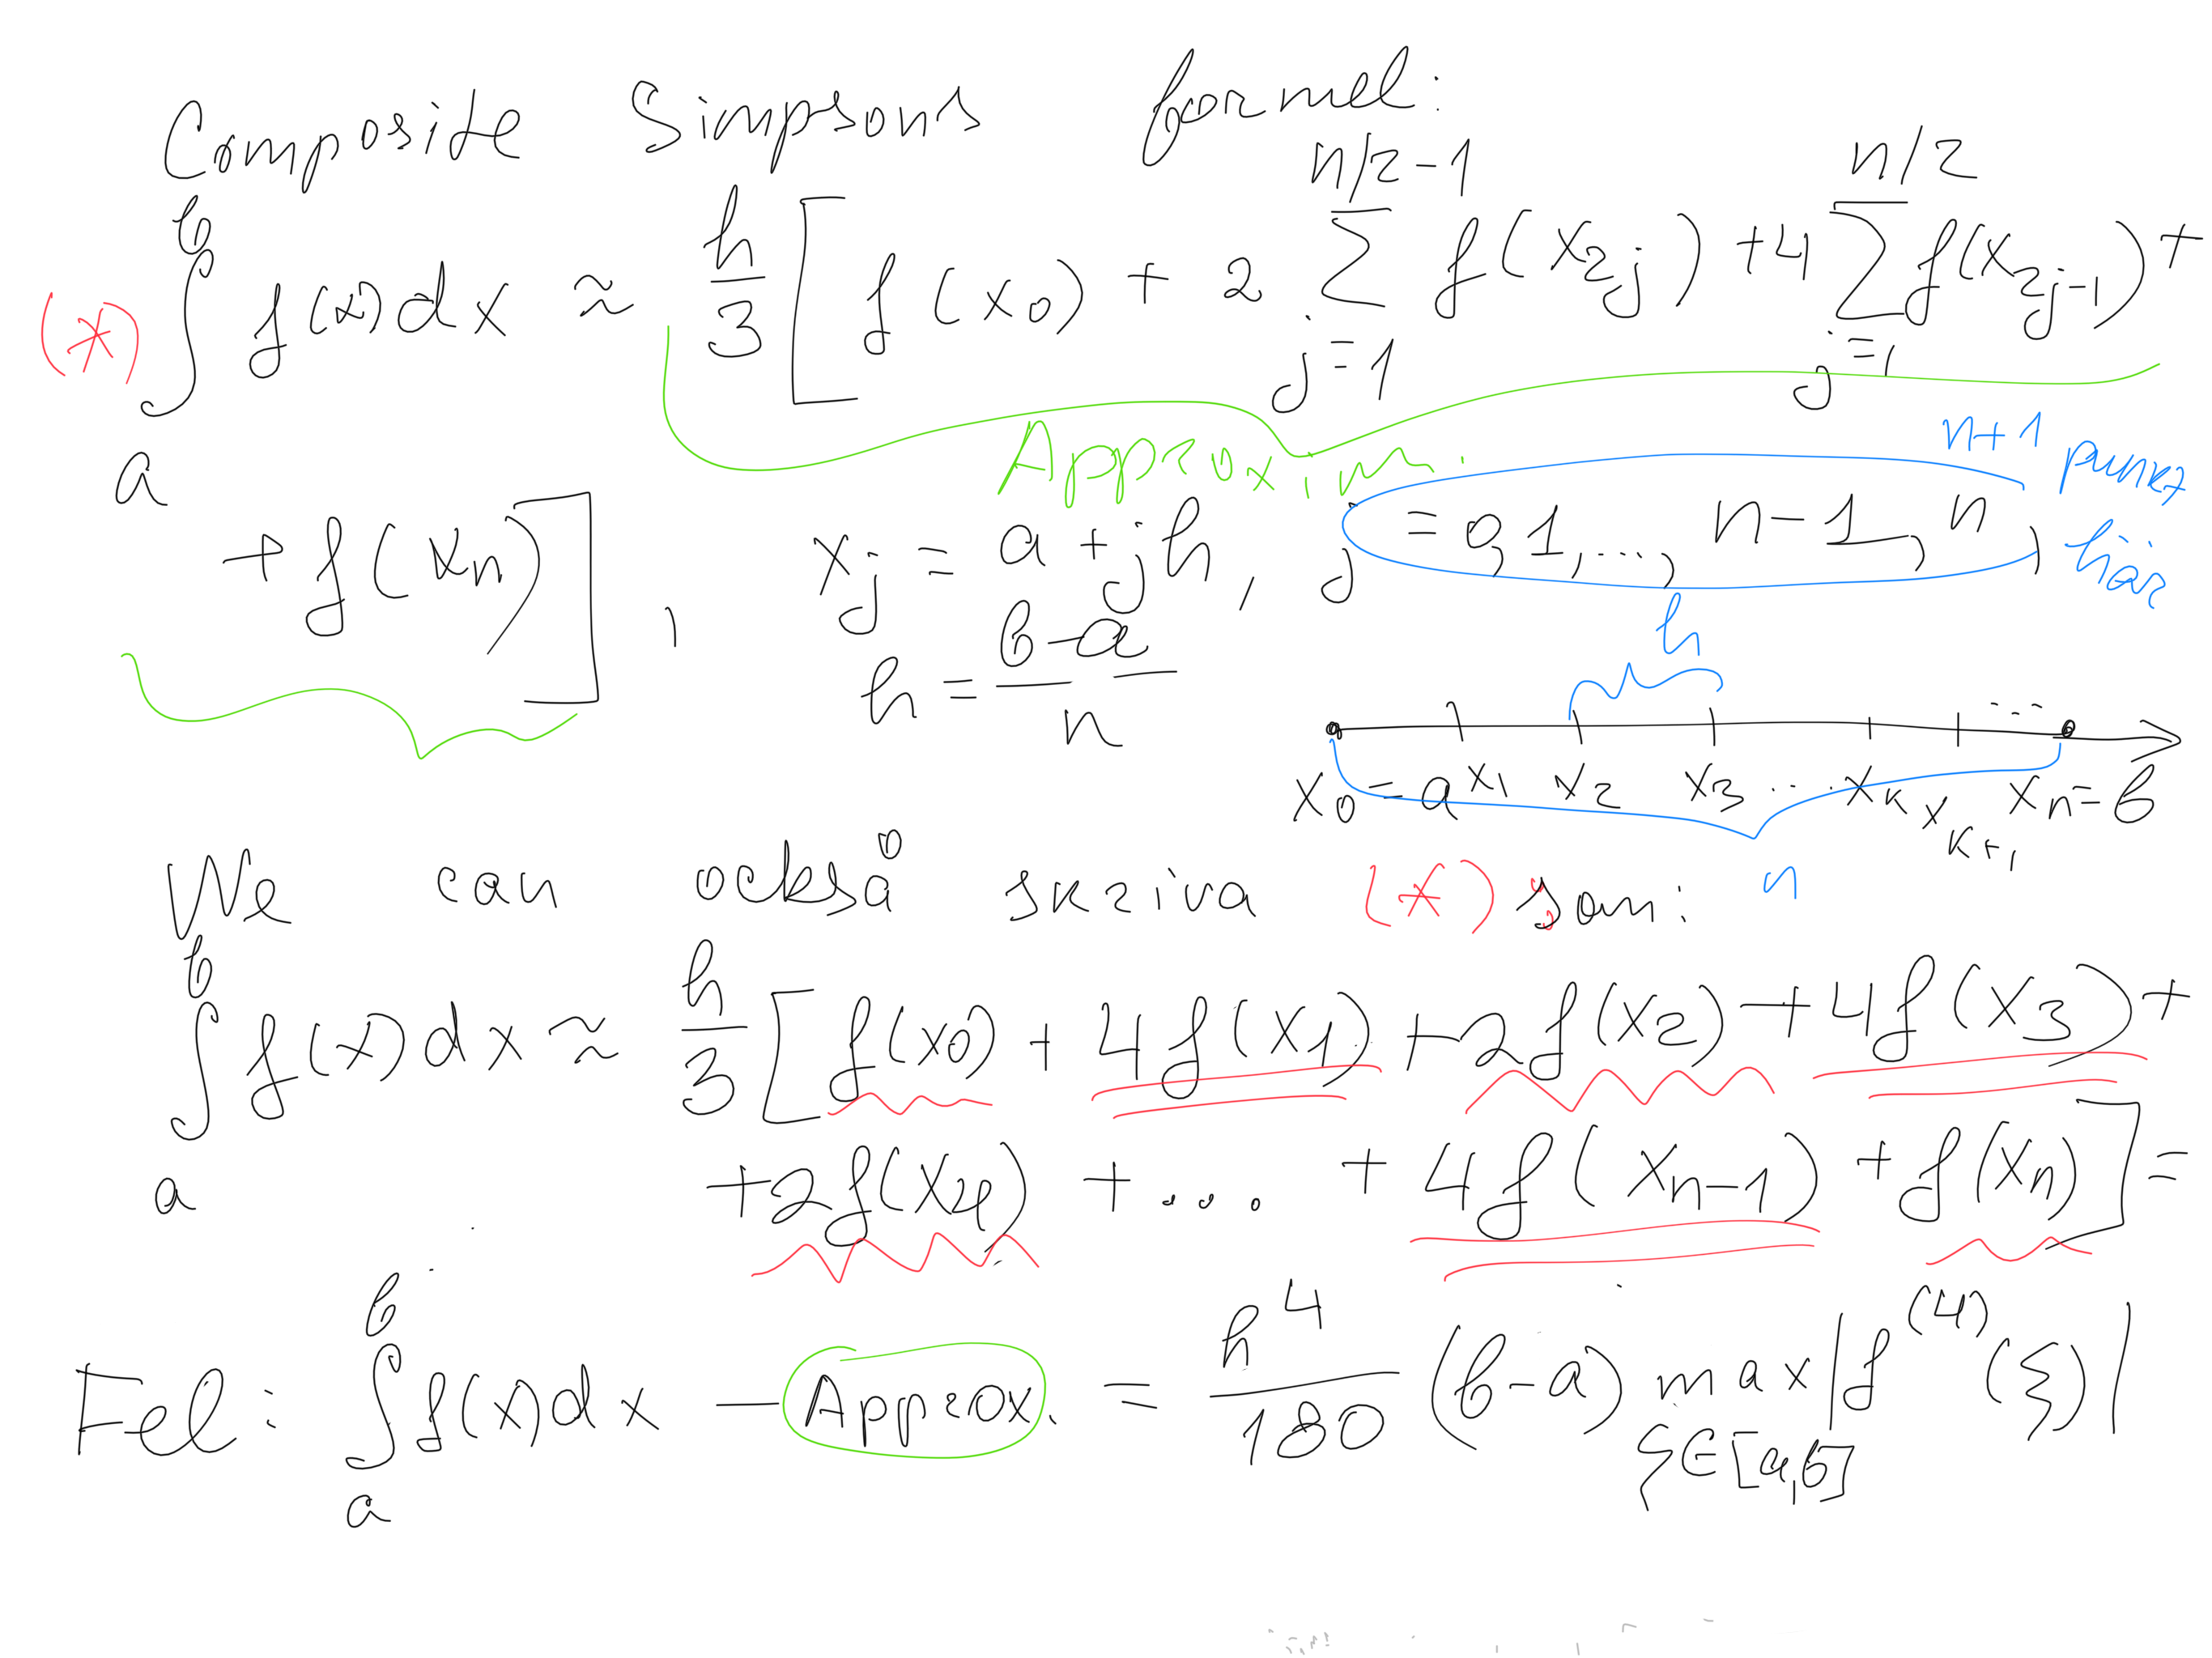 Composite Simpsons formel:
(*) ∫_a^b f(x)dx ≈ h/3 [ f(x_0) + 2 ∑_{j=1}^{n/2-1} f(x_{2j}) + 4 ∑_{j=1}^{n/2} f(x_{2j-1}) +
Approxim
n+1 punkt här
+ f(x_n) ] , x_j = a + jh, j = 0, 1, ..., n-1, n,
h = (b-a)/n
h
x_0 = a x_1 x_2 x_3 ... x_k x_{k+1} ... x_n = b
n
We can också skriva (*) som:
∫_a^b f(x)dx ≈ h/3 [ f(x_0) + 4f(x_1) + 2f(x_2) + 4f(x_3) +
+ 2f(x_4) + ... + 4f(x_{n-1}) + f(x_n) ] =
Fel: ∫_a^b f(x)dx - Approx. = h^4/180 (b-a) max_{ξ∈[a,b]} |f^{(4)}(ξ)|